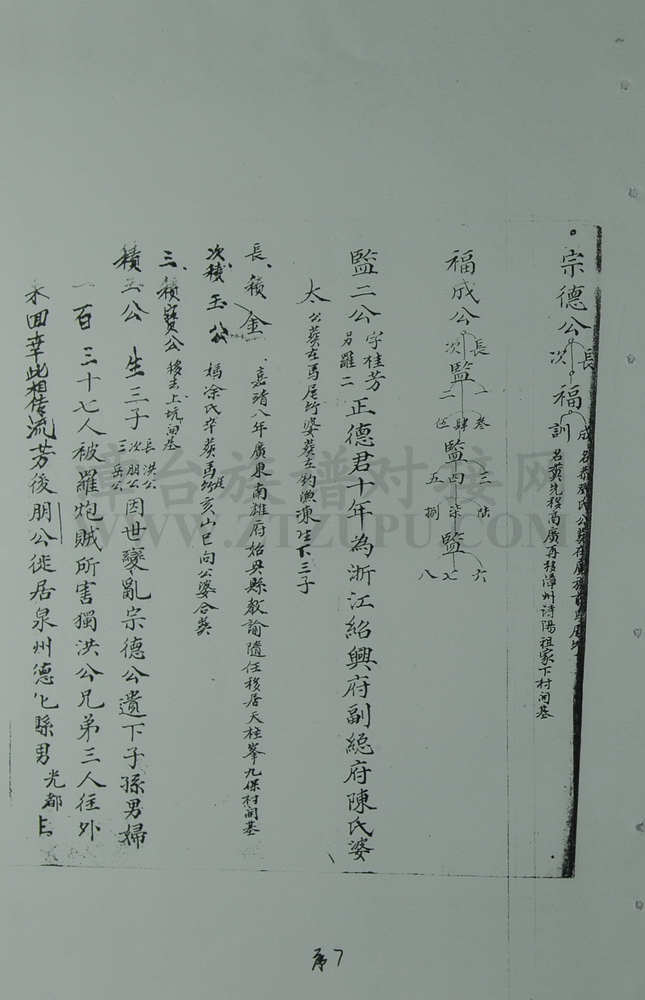 宗德公 長 次 福
訓 名 先移高廣再移漳州詩陽祖家下村開基
福成公 長 次 監
一 二 叁 肆 伍 監 三 四 五 陆 柒 捌 監 六 七 八
監二公 字桂芳 另羅二 正德君十年為浙江紹興府副総府陳氏婆
太公葬在馬尾 婆葬在釣漁凍生下三子
長、積金 嘉靖八年廣東南雄府始興縣教諭隨任移居天柱峯九保村開基
次、積玉公 媽涂氏卒葬馬 亥山巳向公婆合葬
三、積寶公 移去上坑開基
積玉公 生三子 長洪公 次朋公 三岳公 因世變亂宗德公遺下子孫男婦
一百三十七人被羅炮賊所害獨洪公兄弟三人往外
永回幸此相傳流芳後朋公徙居泉州德化縣男光都
章台族谱对接网
WWW.ZTZUPU.COM
序7